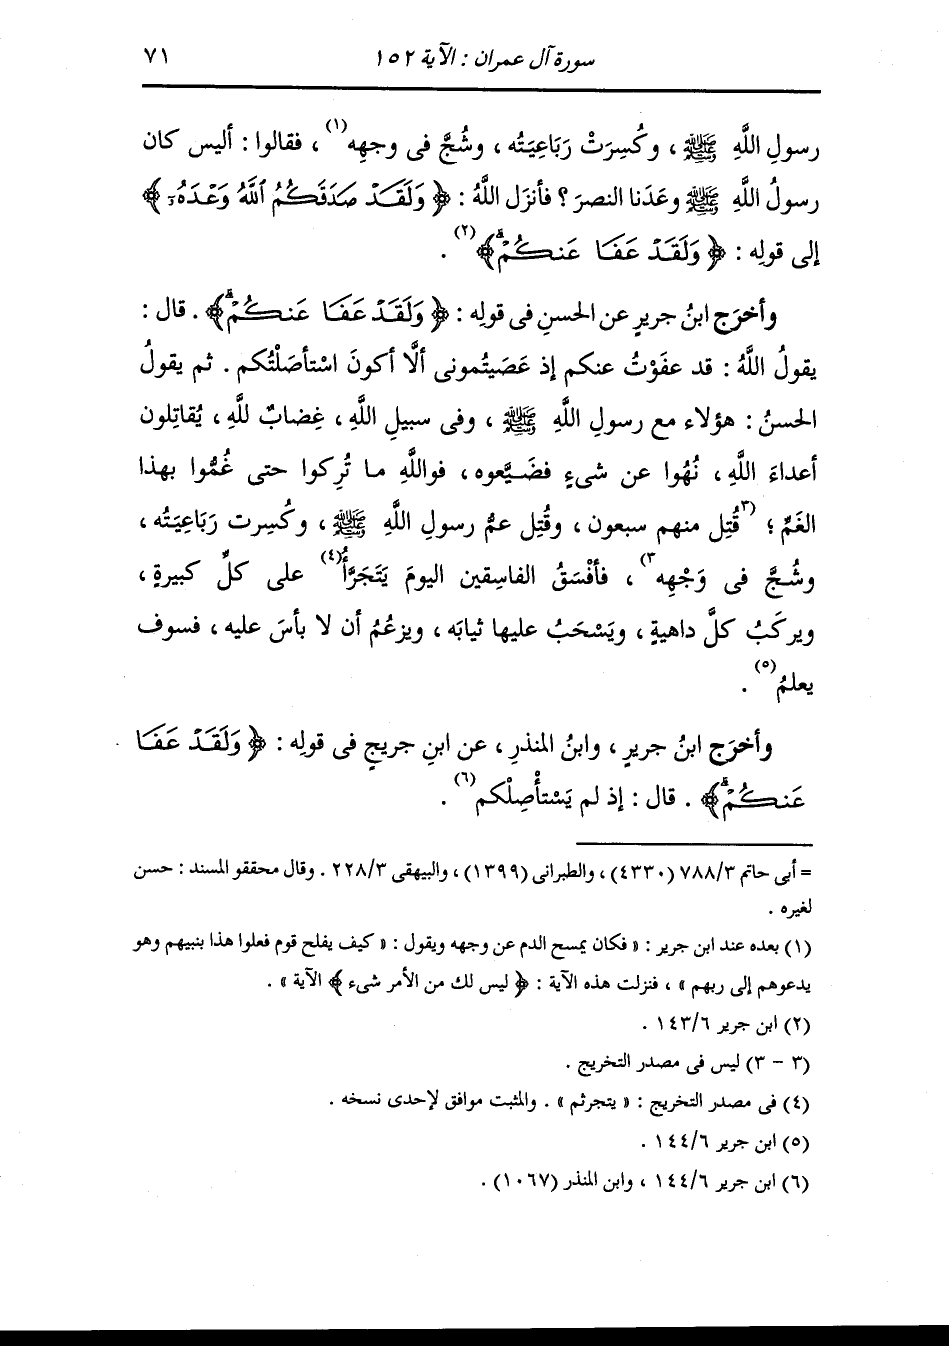 سورة آل عمران : الآية ١٥٢ ٧١
رسولِ اللَّهِ ﷺ ، وكُسِرَتْ رَبَاعِيَتُه ، وشُجَّ فى وجهِه(١) ، فقالوا : أليس كان
رسولُ اللَّهِ ﷺ وعَدَنا النصرَ ؟ فأنزَل اللَّهُ : ﴿ وَلَقَدْ صَدَقَكُمُ ٱللَّهُ وَعْدَهُۥٓ ﴾
إلى قولِه : ﴿ وَلَقَدْ عَفَا عَنكُمْۗ ﴾(٢) .
وأخرَج ابنُ جريرٍ عن الحسنِ فى قولِه : ﴿ وَلَقَدْ عَفَا عَنكُمْۗ ﴾ . قال :
يقولُ اللَّهُ : قد عفَوْتُ عنكم إذ عَصَيتُمونى ألَّا أكونَ اسْتأصَلْتُكم . ثم يقولُ
الحسنُ : هؤلاء مع رسولِ اللَّهِ ﷺ ، وفى سبيلِ اللَّهِ ، غِضابٌ للَّهِ ، يُقاتِلون
أعداءَ اللَّهِ ، نُهُوا عن شىءٍ فضَيَّعوه ، فواللَّهِ ما تُرِكوا حتى غُمُّوا بهذا
الغَمِّ ؛ (٣قُتِل منهم سبعون ، وقُتِل عمُّ رسولِ اللَّهِ ﷺ ، وكُسِرت رَبَاعِيَتُه ،
وشُجَّ فى وَجْهِه٣) ، فأفْسَقُ الفاسِقين اليومَ يَتَجَرَّأُ(٤) على كلِّ كبيرةٍ ،
ويركَبُ كلَّ داهيةٍ ، ويَسْحَبُ عليها ثيابَه ، ويزعُمُ أن لا بأسَ عليه ، فسوف
يعلمُ(٥) .
وأخرَج ابنُ جريرٍ ، وابنُ المنذرِ ، عن ابنِ جريجٍ فى قولِه : ﴿ وَلَقَدْ عَفَا
عَنكُمْۗ ﴾ . قال : إذ لم يَسْتأْصِلْكم(٦) .
= أبى حاتم ٧٨٨/٣ (٤٣٣٠) ، والطبرانى (١٣٩٩) ، والبيهقى ٢٢٨/٣ . وقال محققو المسند : حسن
لغيره .
(١) بعده عند ابن جرير : « فكان يمسح الدم عن وجهه ويقول : « كيف يفلح قوم فعلوا هذا بنبيهم وهو
يدعوهم إلى ربهم » ، فنزلت هذه الآية : ﴿ ليس لك من الأمر شىء ﴾ الآية » .
(٢) ابن جرير ١٤٣/٦ .
(٣ - ٣) ليس فى مصدر التخريج .
(٤) فى مصدر التخريج : « يتجرثم » . والمثبت موافق لإحدى نسخه .
(٥) ابن جرير ١٤٤/٦ .
(٦) ابن جرير ١٤٤/٦ ، وابن المنذر (١٠٦٧) .